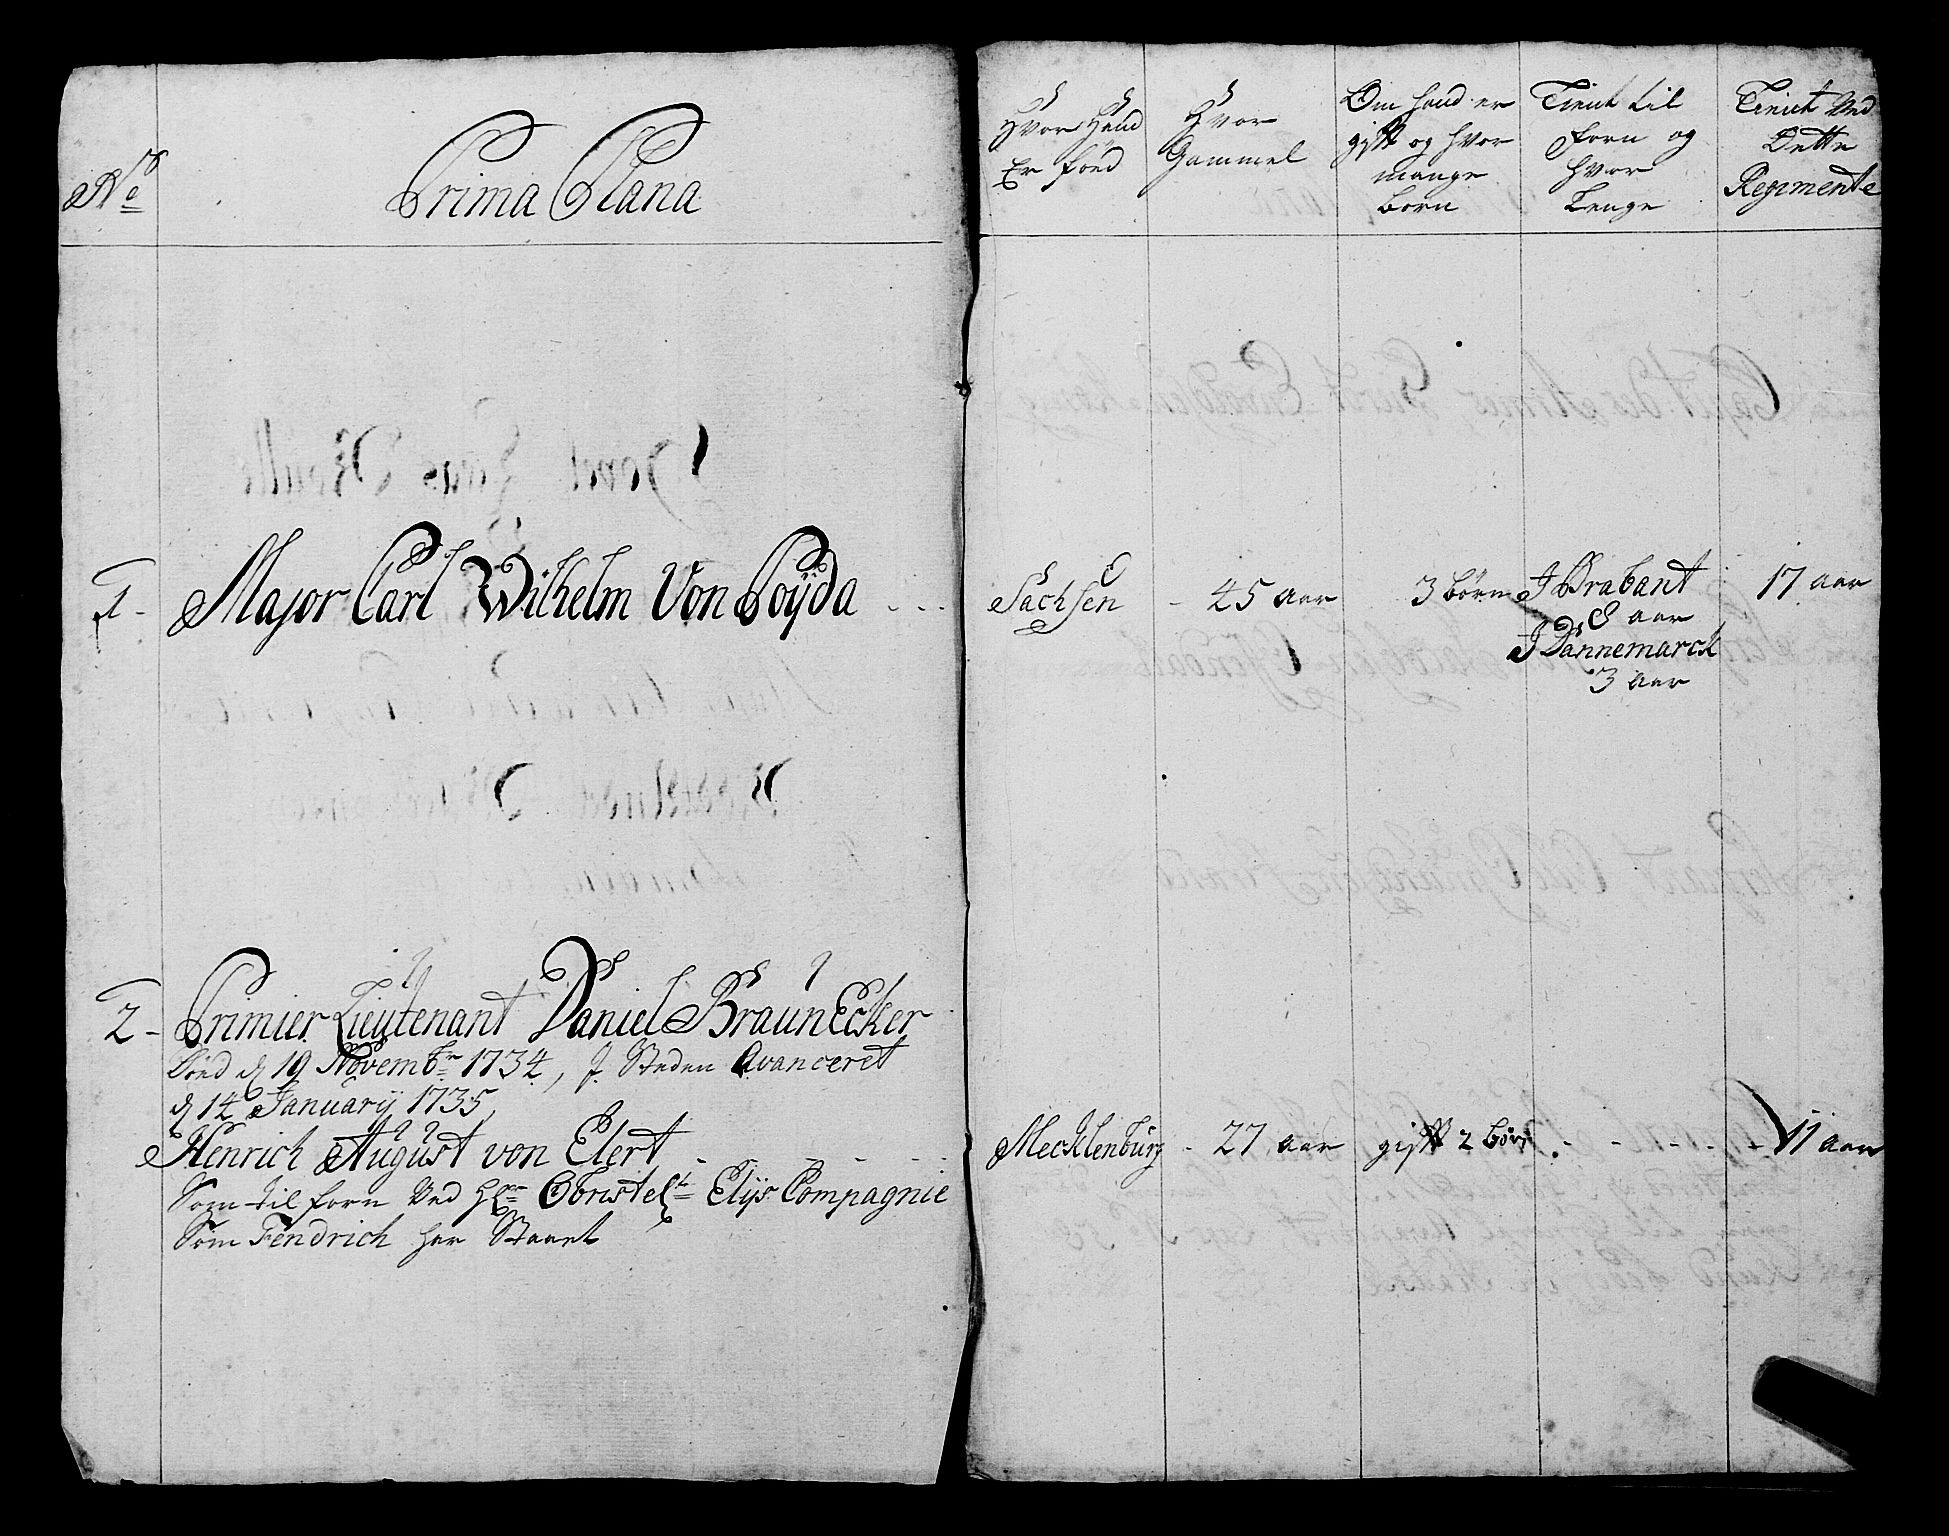 No
Prima Plana
Hvor Hand
Er föed
Hvor
Gammel
Om hand er
gift og hvor
mange
born
Tient til
forn og
hvor
Lenge
Tient Ved
Dette
Regimente
1 - Major Carl Wilhelm Von Poÿda - - -
Sachsen - 45 aar
3 börn
J Brabant
8 aar
J Dannemarck
3 aar
17 aar
2 - Primier Lieutenant Daniel Braun Ecker
Död d 19 Novembr 1734, J Steden Avanceret
d 14 Januarÿ 1735,
Henrich August von Elert - - - - -
Mecklenburg - 27 aar
gift 2 börn - - - -
11 aar
Som til forn Ved Hr Obristelt Elÿs Compagnie
Som Fendrich har Staaet